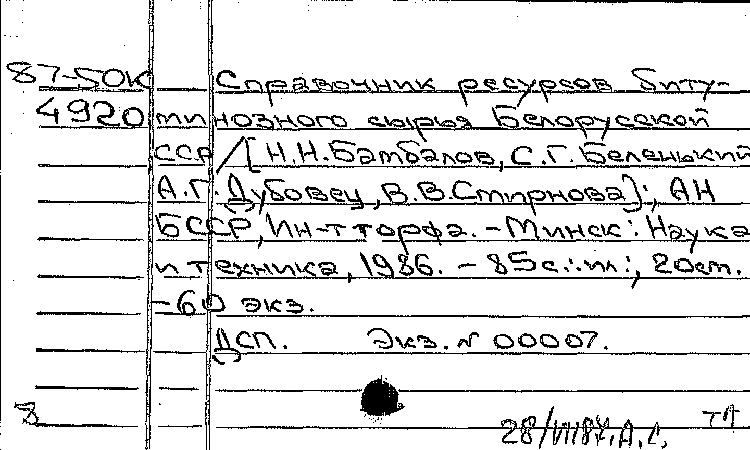 87-50К Справочник ресурсов биту-
4920 минозного сырья Белорусской
ССР / [Н.Н.Бамбалов, С.Г. Беленький
А.Г. Дубовец, В.В.Смирнова]; АН
БССР, Ин-т торфа. - Минск: Наука
и техника, 1986. - 85с.: ил.; 20см.
-60 экз.
ДСП. Экз. N 00007.
8